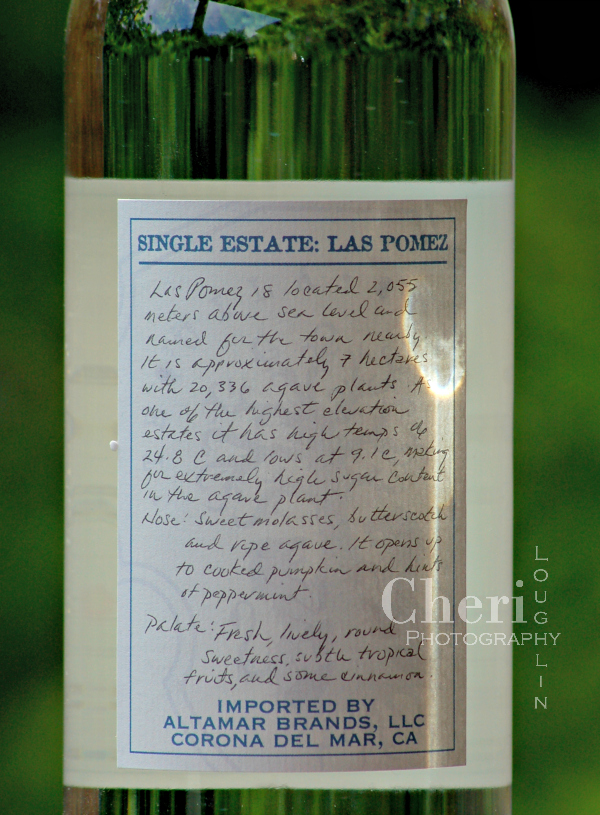 SINGLE ESTATE: LAS POMEZ
Las Pomez is located 2,055
meters above sea level and
named for the town nearby
It is approximately 7 hectares
with 20,336 agave plants. As
one of the highest elevation
estates it has high temps of
24.8 C and lows at 9.1 C, making
for extremely high sugar content
in the agave plant.
Nose: Sweet molasses, butterscotch
and rype agave. It opens up
to cooked pumpkin and hints
of peppermint.
Palate: Fresh, lively, round
Sweetness, subtle tropical
fruits, and some cinnamon.
IMPORTED BY
ALTAMAR BRANDS, LLC
CORONA DEL MAR, CA
Cheri
LOUGHLIN
PHOTOGRAPHY